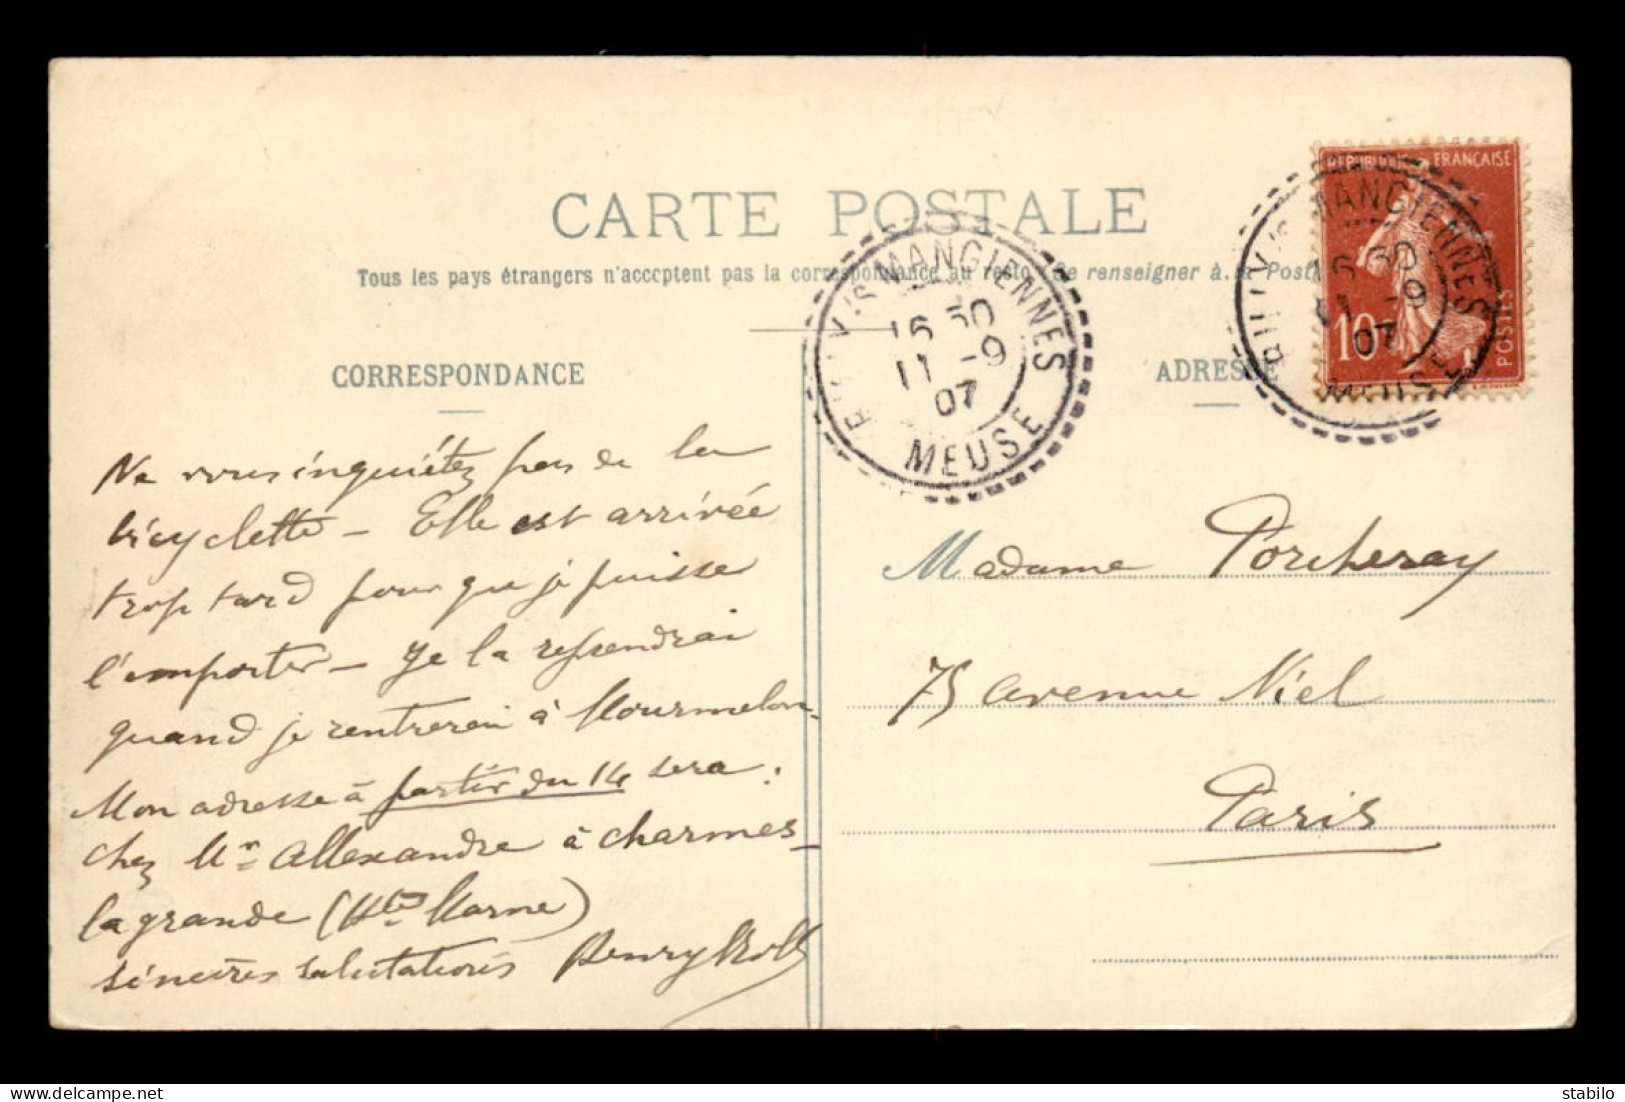 CARTE POSTALE
Tous les pays étrangers n'acceptent pas la correspondance au recto (Se renseigner à la Poste
CORRESPONDANCE
ADRESSE
REPUBLIQUE FRANÇAISE
POSTES
10
VIS MANGIENNES
16 30
11 -9
07
MEUSE
VIS MANGIENNES
16 30
11 -9
07
MEUSE
Ne vous inquiétez pas de la
bicyclette — Elle est arrivée
trop tard pour que je puisse
l'emporter — Je la reprendrai
quand je rentrerai à Mourmelon.
Mon adresse à partir du 14 sera :
chez Mr Allexandre à Charmes-
la grande (Hte Marne)
sincères salutations Henry
Madame Porcheray
75 avenue Niel
Paris
stabilo